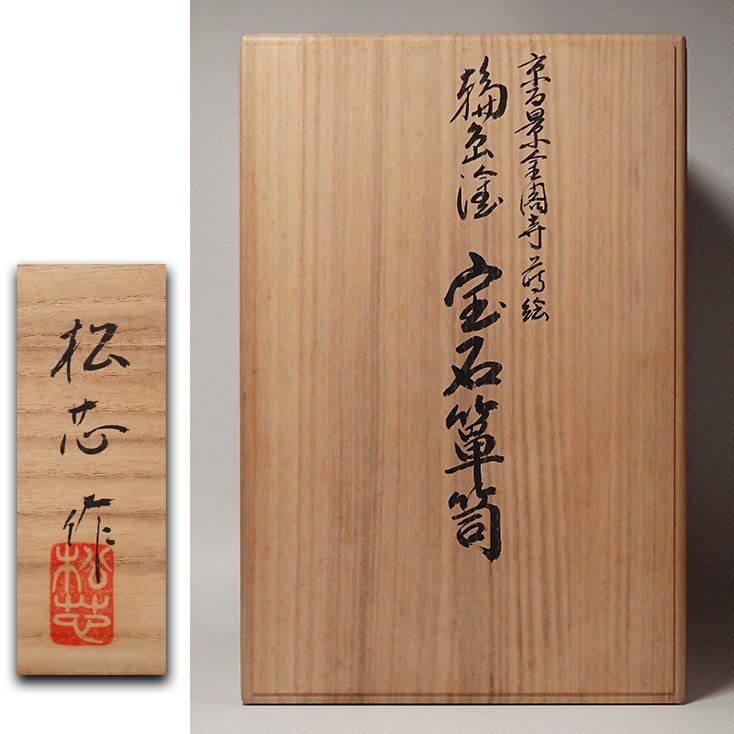 京名景金閣寺蒔絵
輪島塗 宝石箪笥
松芯作
松芯